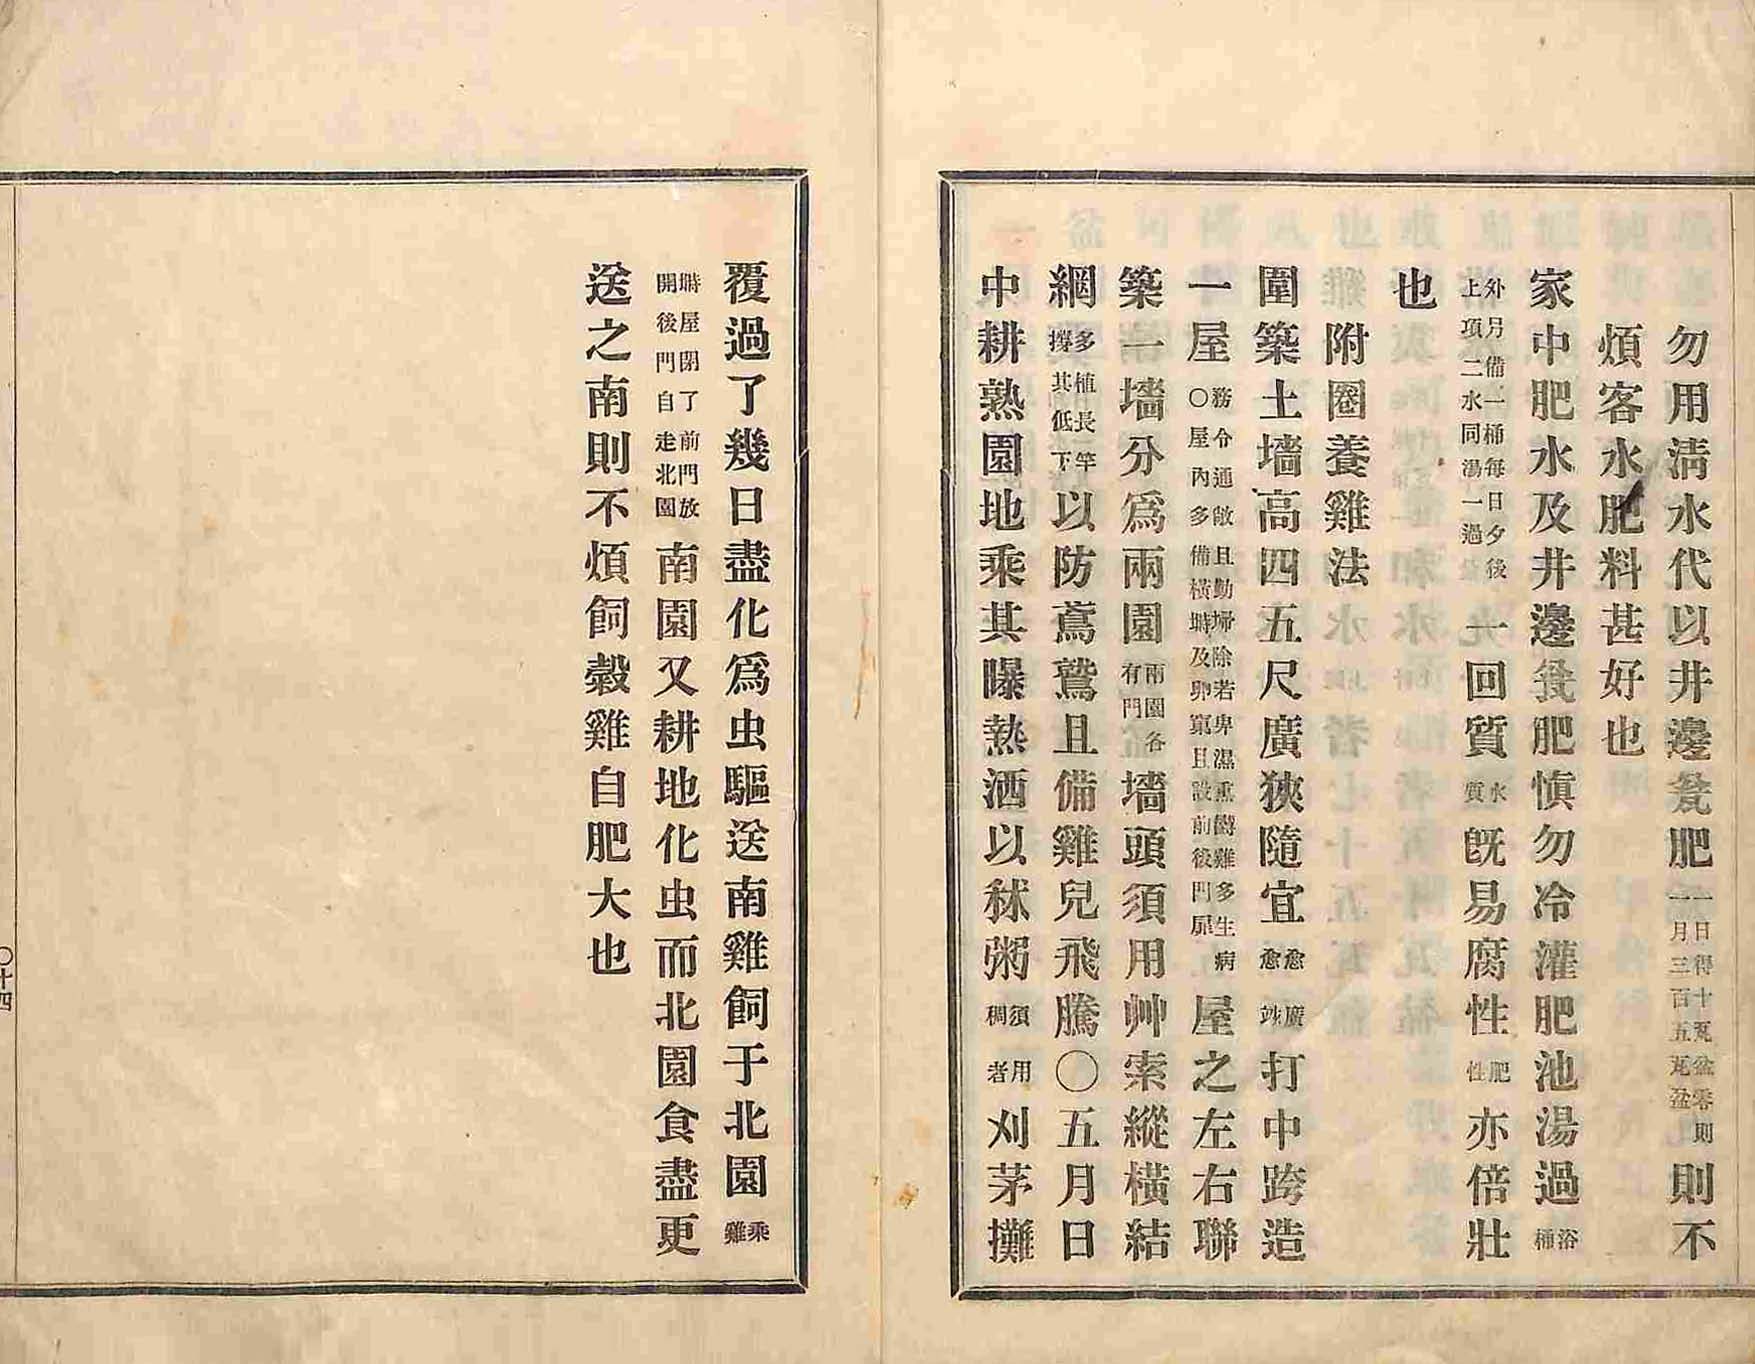 勿用淸水代以井邊㲲肥一日得十瓦盆零則一月三百五瓦盆則不
煩客水肥料甚好也
家中肥水及井邊肥愼勿冷灌肥池湯過浴桶
外另備一桶每日夕後上項二水同湯一過一回質水質旣易腐性肥性亦倍壯
也
附圈養雞法
圍築土墻高四五尺廣狹隨宜愈廣愈妙打中跨造
一屋務令通敞且勤掃除若卑濕熏鬱雞多生病〇屋內多備橫塒及卵窠且設前後門扉屋之左右聯
築一墻分爲兩園兩園各有門墻頭須用艸索縱橫結
網多植長竿撐其低下以防鳶鷲且備雞兒飛騰〇五月日
中耕熟園地乘其曝熱洒以秫粥須用稠者刈茅攤
覆過了幾日盡化爲虫驅送南雞飼于北園乘雞
塒屋閉了前門放開後門自走北園南園又耕地化虫而北園食盡更
送之南則不煩飼穀雞自肥大也
〇十四